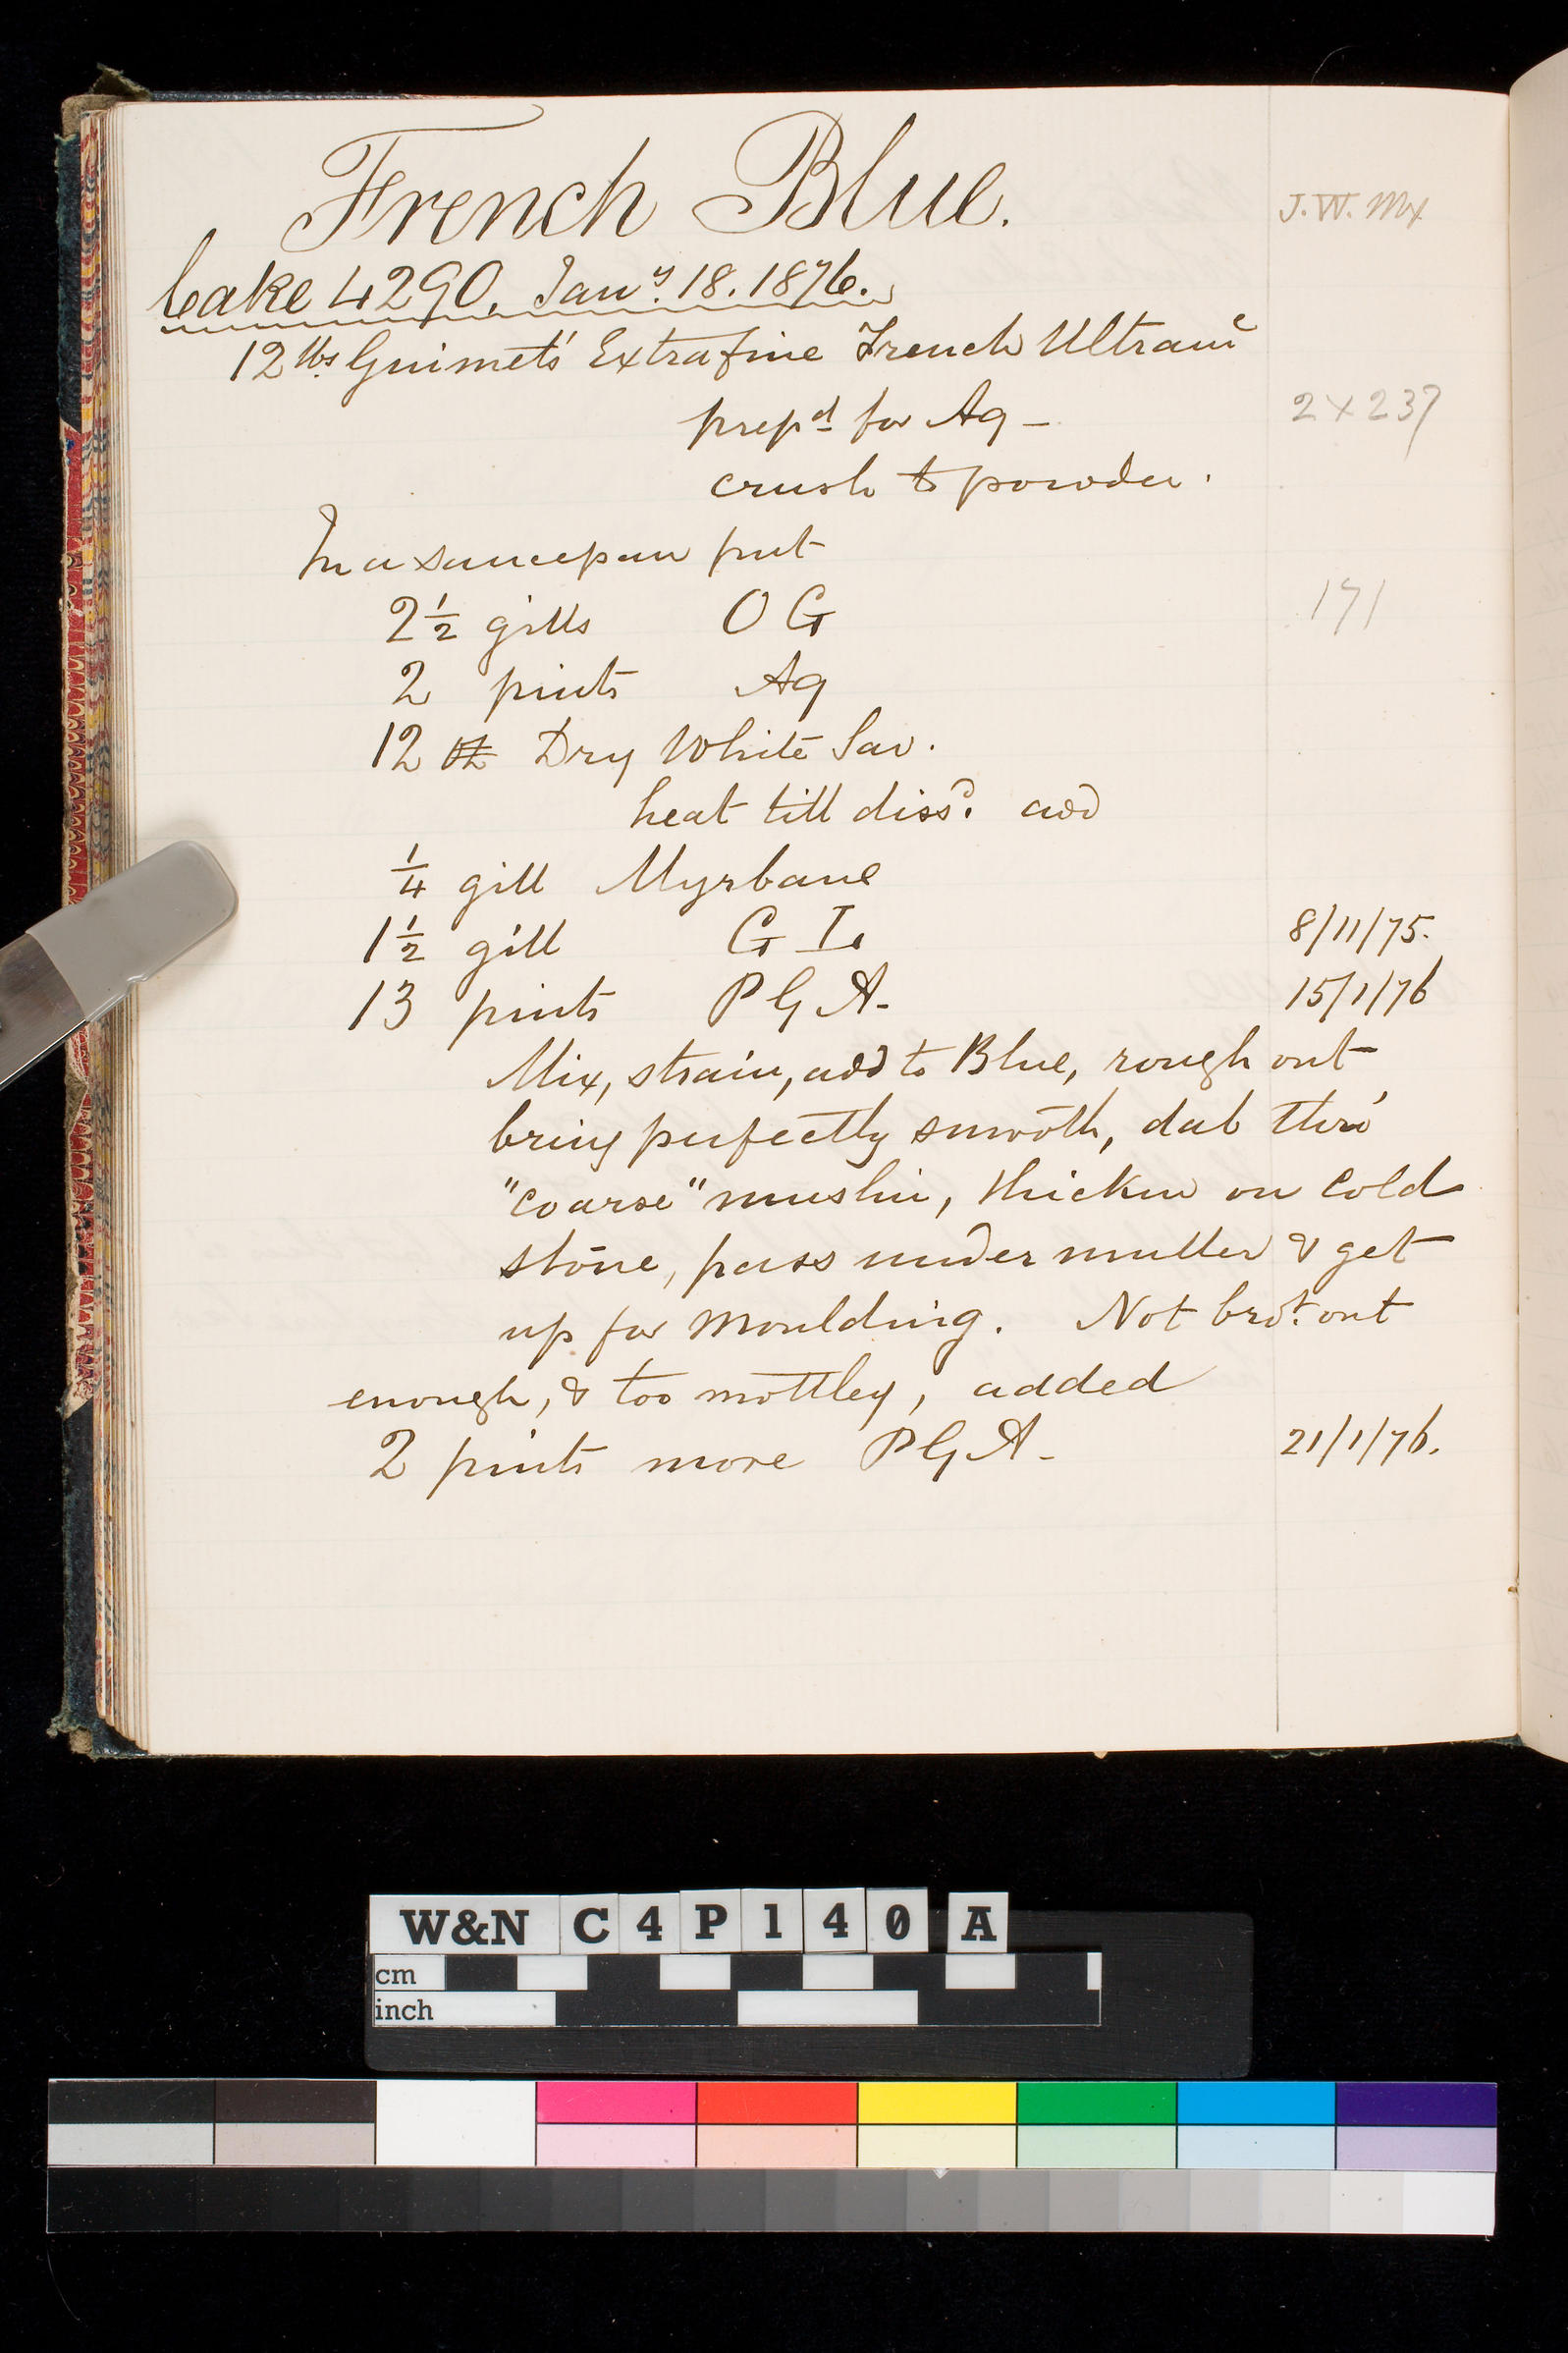 French Blue.
J. W. Mx
Cake 4290. Jany. 18. 1876.
12 lbs Guimet's Extrafine French Ultrame
prepd for Aq –
2 x 237
crush to powder.
In a saucepan put
2½ gills O G
171
2 pints Aq
12 Dry White Sav.
heat till dissd. add
¼ gill Myrbane
1½ gill G I.
8/11/75.
13 pints P G A -
15/1/76
Mix, strain, add to Blue, rough out
bring perfectly smooth, dab thro'
"coarse" muslin, thicken on cold
stone, pass under muller & get
up for moulding. Not brot. out
enough, & too mottley, added
2 pints more P G A -
21/1/76.
W&N C4P140 A
cm
inch